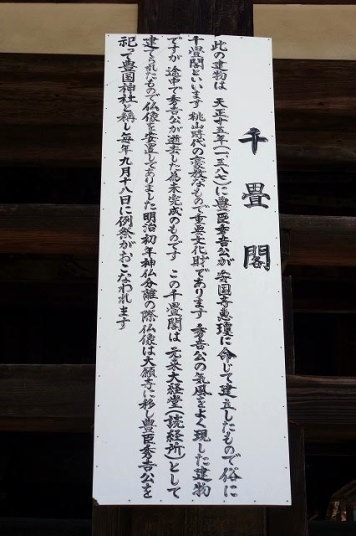 千畳閣
此の建物は 天正十五年(一、五八七)に豊臣秀吉公が安国寺恵瓊に命じて建立したもので俗に
千畳閣といいます 桃山時代の豪放なもので重要文化財であります 秀吉公の気風をよく現した建物
ですが 途中で秀吉公が逝去した為未完成のものです この千畳閣は元来大経堂(読経所)として
建てられたもので仏像を安置してありました 明治初年神仏分離の際仏像は大願寺に移し豊臣秀吉公を
祀って豊国神社と称し毎年九月十八日に例祭がおこなわれます